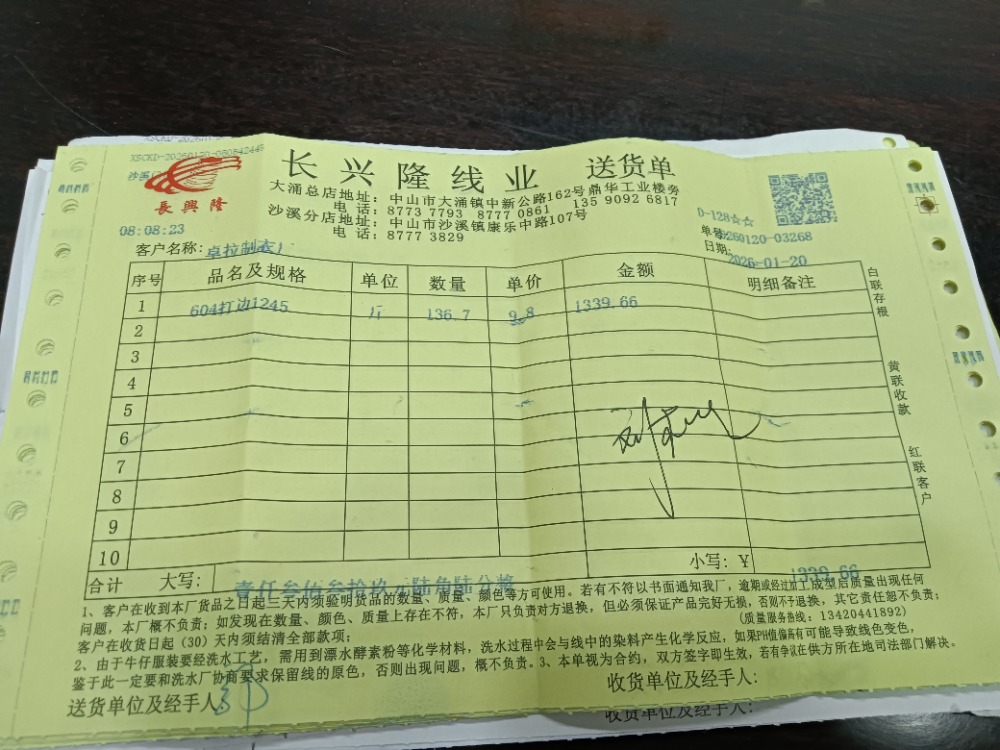 XSCKD-20260120-080842449
長興隆
长兴隆线业 送货单
大涌总店地址：中山市大涌镇中新公路162号鼎华工业楼旁
电话：8773 7793 8777 0861 135 9092 6817
沙溪分店地址：中山市沙溪镇康乐中路107号
电话：8777 3829
D-128☆☆
08:08:23
单号:
20260120-03268
客户名称：卓拉制衣厂
日期:
2026-01-20
序号 品名及规格 单位 数量 单价 金额 明细备注
1 604打边1245 斤 136.7 9.8 1339.66
2
3
4
5
6
7
8
9
10
白联存根
黄联收款
红联客户
合计 大写： 壹仟叁佰叁拾玖元陆角陆分整 小写：¥ 1339.66
1、客户在收到本厂货品之日起三天内须验明货品的数量、质量、颜色等方可使用。若有不符以书面通知我厂，逾期或经过加工成型后质量出现任何
问题，本厂概不负责；如发现在数量、颜色、质量上存在不符，本厂只负责对方退换，但必须保证产品完好无损，否则不予退换，其它责任恕不负责；
客户在收货日起（30）天内须结清全部款项； （质量服务热线：13420441892）
2、由于牛仔服装要经洗水工艺，需用到漂水酵素粉等化学材料，洗水过程中会与线中的染料产生化学反应，如果PH值偏高有可能导致线色变色，
鉴于此一定要和洗水厂协商要求保留线的原色，否则出现问题，概不负责。3、本单视为合约，双方签字即生效，若有争议在供方所在地司法部门解决。
送货单位及经手人: 收货单位及经手人:
收货单位及经手人: